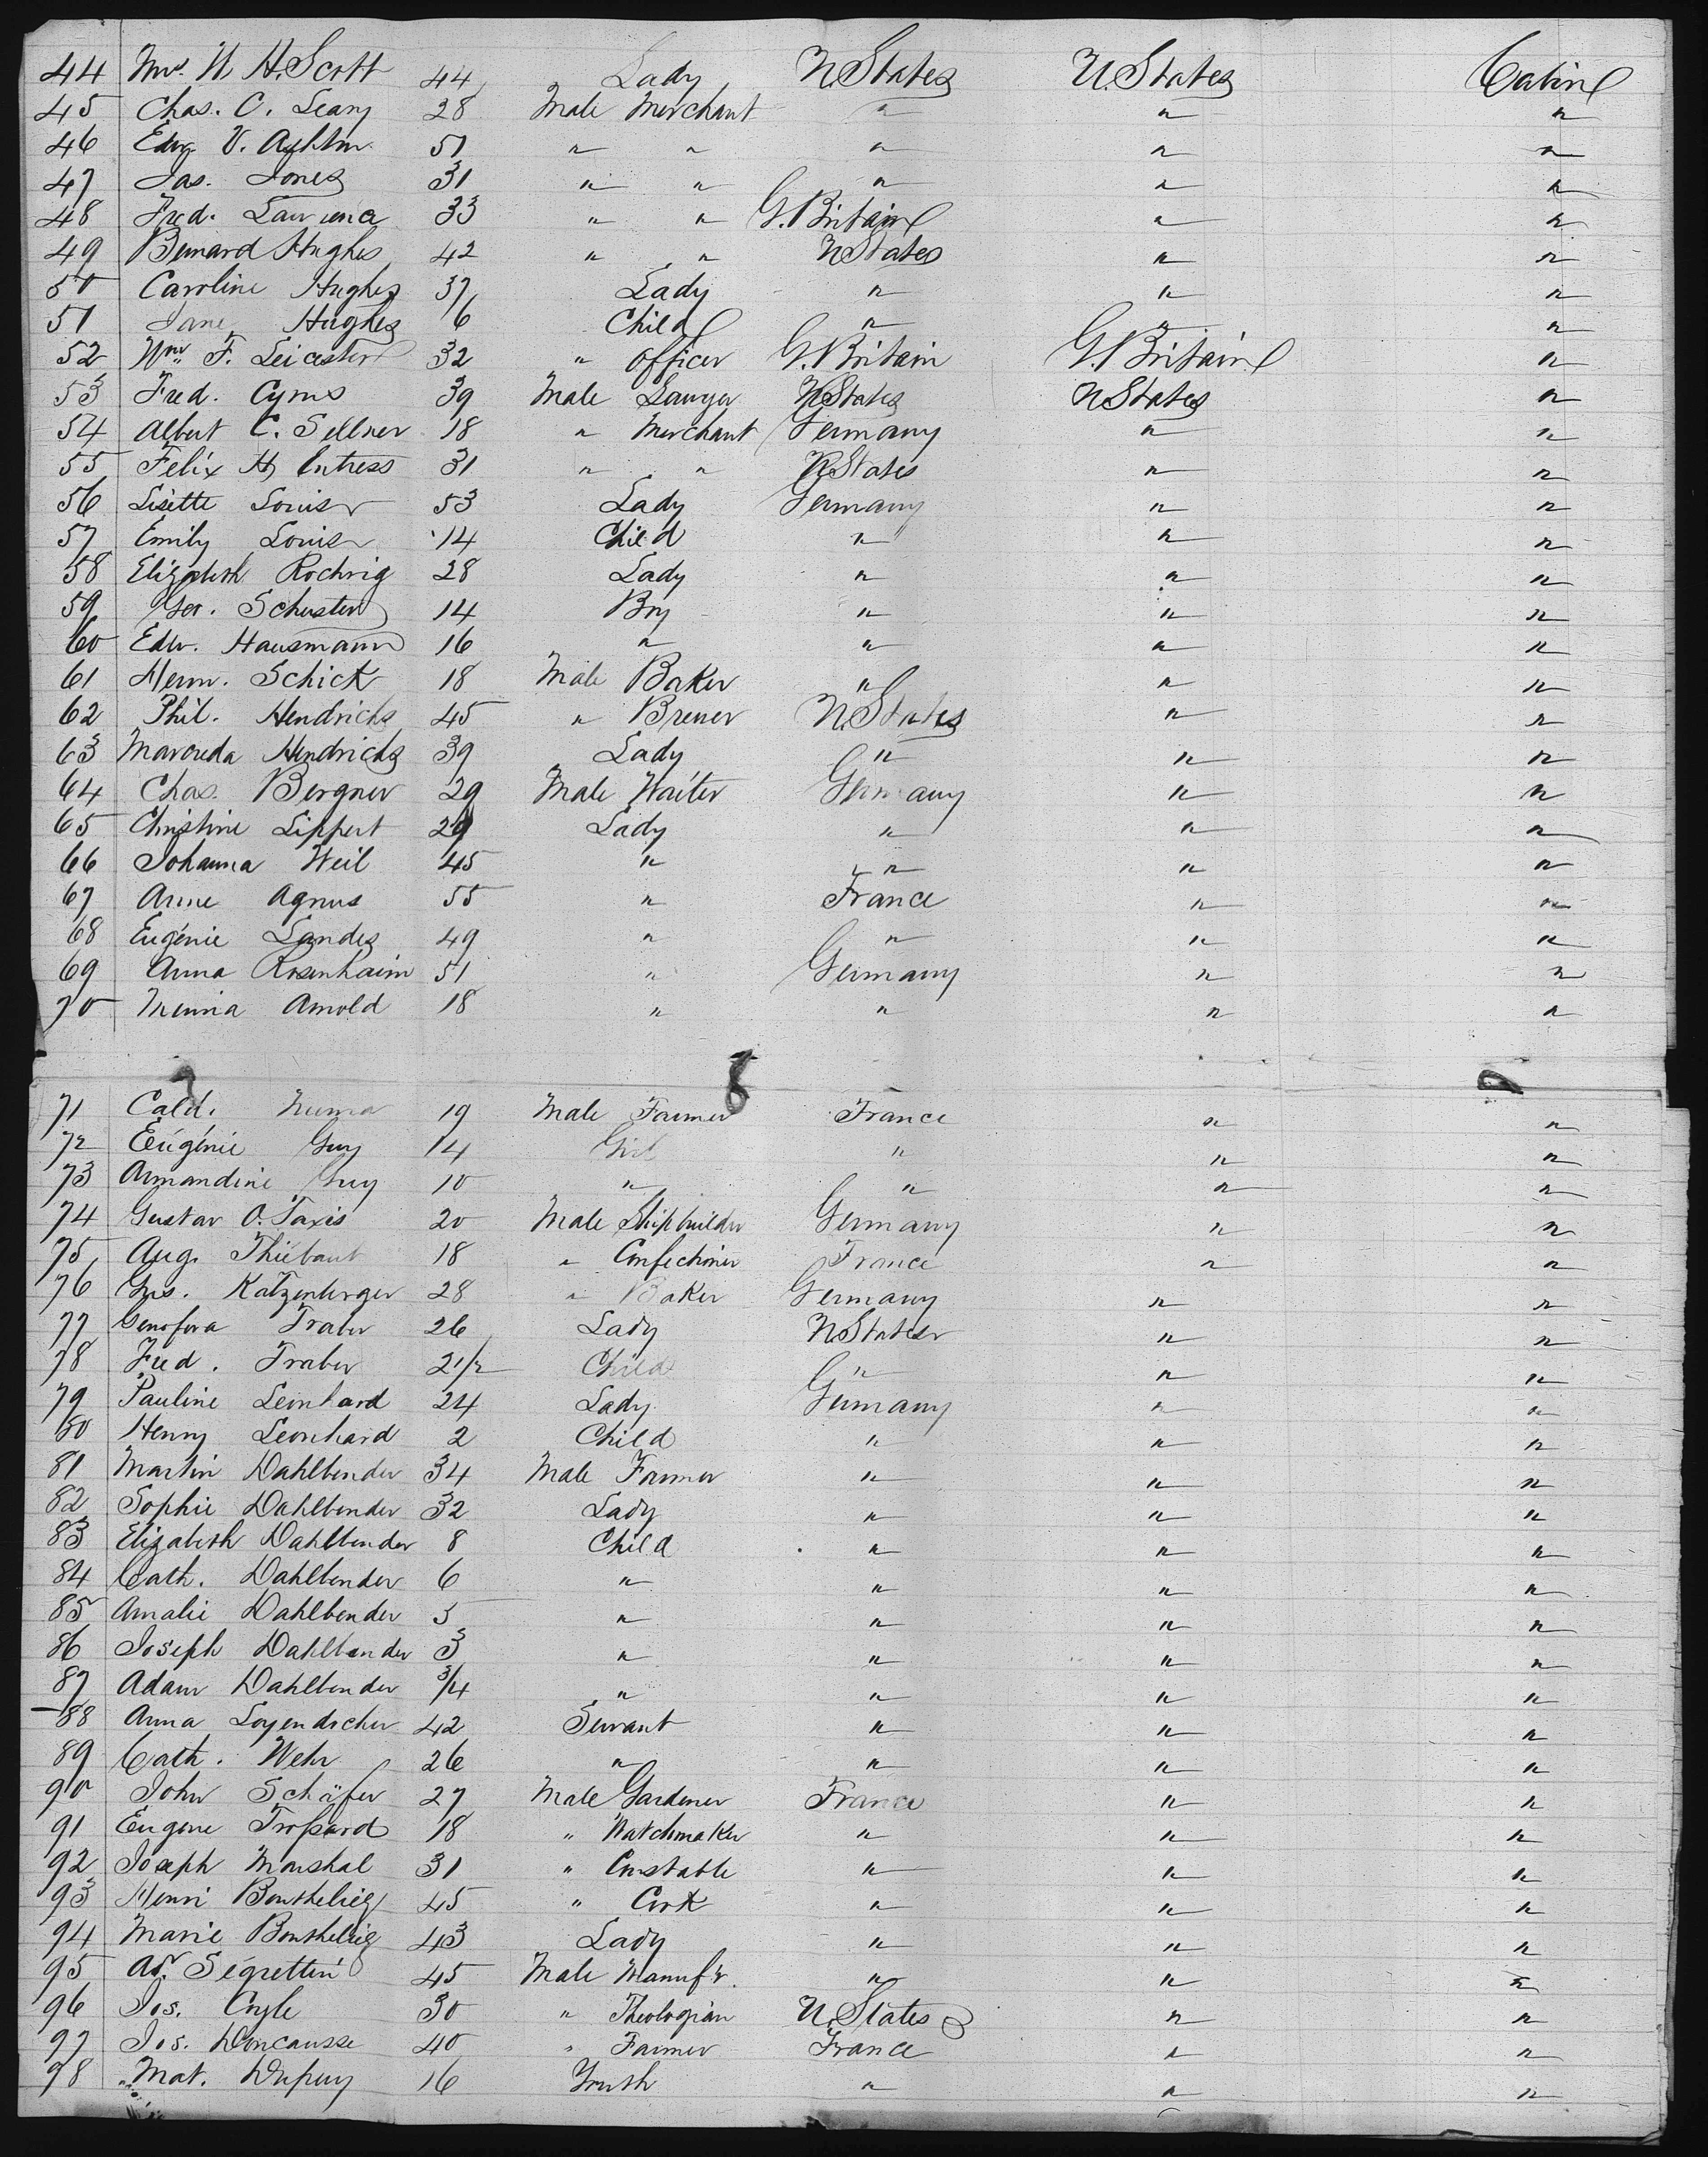 44 Mrs. W H. Scott 44 Lady U. States U. States Cabin
45 Chas. C. Leary 28 Male Merchant " " "
46 Edw. V. Ashton 51 " " " " "
47 Jas. Jones 31 " " " " "
48 Fred. Laurence 33 " " G. Britain " "
49 Bernard Hughes 42 " " U States " "
50 Caroline Hughes 37 Lady " " "
51 Jane Hughes 6 Child " " "
52 Wm. F. Leicester 32 " officer G. Britain G. Britain "
53 Fred. Cyrus 39 Male Lawyer U States U States "
54 Albert C. Sellner 18 " Merchant Germany " "
55 Felix H. Entress 31 " " U States " "
56 Lisette Louis 53 Lady Germany " "
57 Emily Louis 14 Child " " "
58 Elizabeth Rochrig 28 Lady " " "
59 Geo. Schuster 14 Boy " " "
60 Edw. Hausmann 16 " " " "
61 Herm. Schick 18 Male Baker " " "
62 Phil. Hendricks 45 " Brewer U. States " "
63 Hendricks 39 Lady " " "
64 Chas. Bergner 29 Male Waiter Germany " "
65 Christine Lippert 29 Lady " " "
66 Johanna Weil 45 " " " "
67 Anne Agnus 55 " France " "
68 Eugénie Landes 49 " " " "
69 Anna Rosenhaim 51 " Germany " "
70 Menna Arnold 18 " " " "
8
71 Cald. Numa 19 Male Farmer France " "
72 Eugénie Guy 14 Girl " " "
73 Armandine Guy 10 " " " "
74 Gustav O. Taxis 20 Male Shipbuilder Germany " "
75 Aug. Thiebaut 18 " Confectioner France " "
76 Gus. Katzenberger 28 " Baker Germany " "
77 Genofeva Traber 26 Lady U States " "
78 Fred. Traber 2 1/2 Child " " "
79 Pauline Leonhard 24 Lady Germany " "
80 Henry Leonhard 2 Child " " "
81 Martin Dahlbender 34 Male Farmer " " "
82 Sophie Dahlbender 32 Lady " " "
83 Elizabeth Dahlbender 8 Child " " "
84 Cath. Dahlbender 6 " " " "
85 Amalie Dahlbender 5 " " " "
86 Joseph Dahlbender 3 " " " "
87 Adam Dahlbender 3/4 " " " "
88 Anna Loyendecher 42 Servant " " "
89 Cath. Wehr 26 " " " "
90 John Schäfer 27 Male Gardener France " "
91 Eugene Trossard 18 " Watchmaker " " "
92 Joseph Marshal 31 " Constable " " "
93 Henri Bouthelieg 45 " Cook " " "
94 Marie Bouthelieg 43 Lady " " "
95 Ad. Ségrettin 45 Male Manuf'r. " " "
96 Jos. Cryle 30 " Theologian U. States " "
97 Jos. Doncausse 40 " Farmer France " "
98 Mat. Dupuy 16 Youth " " "